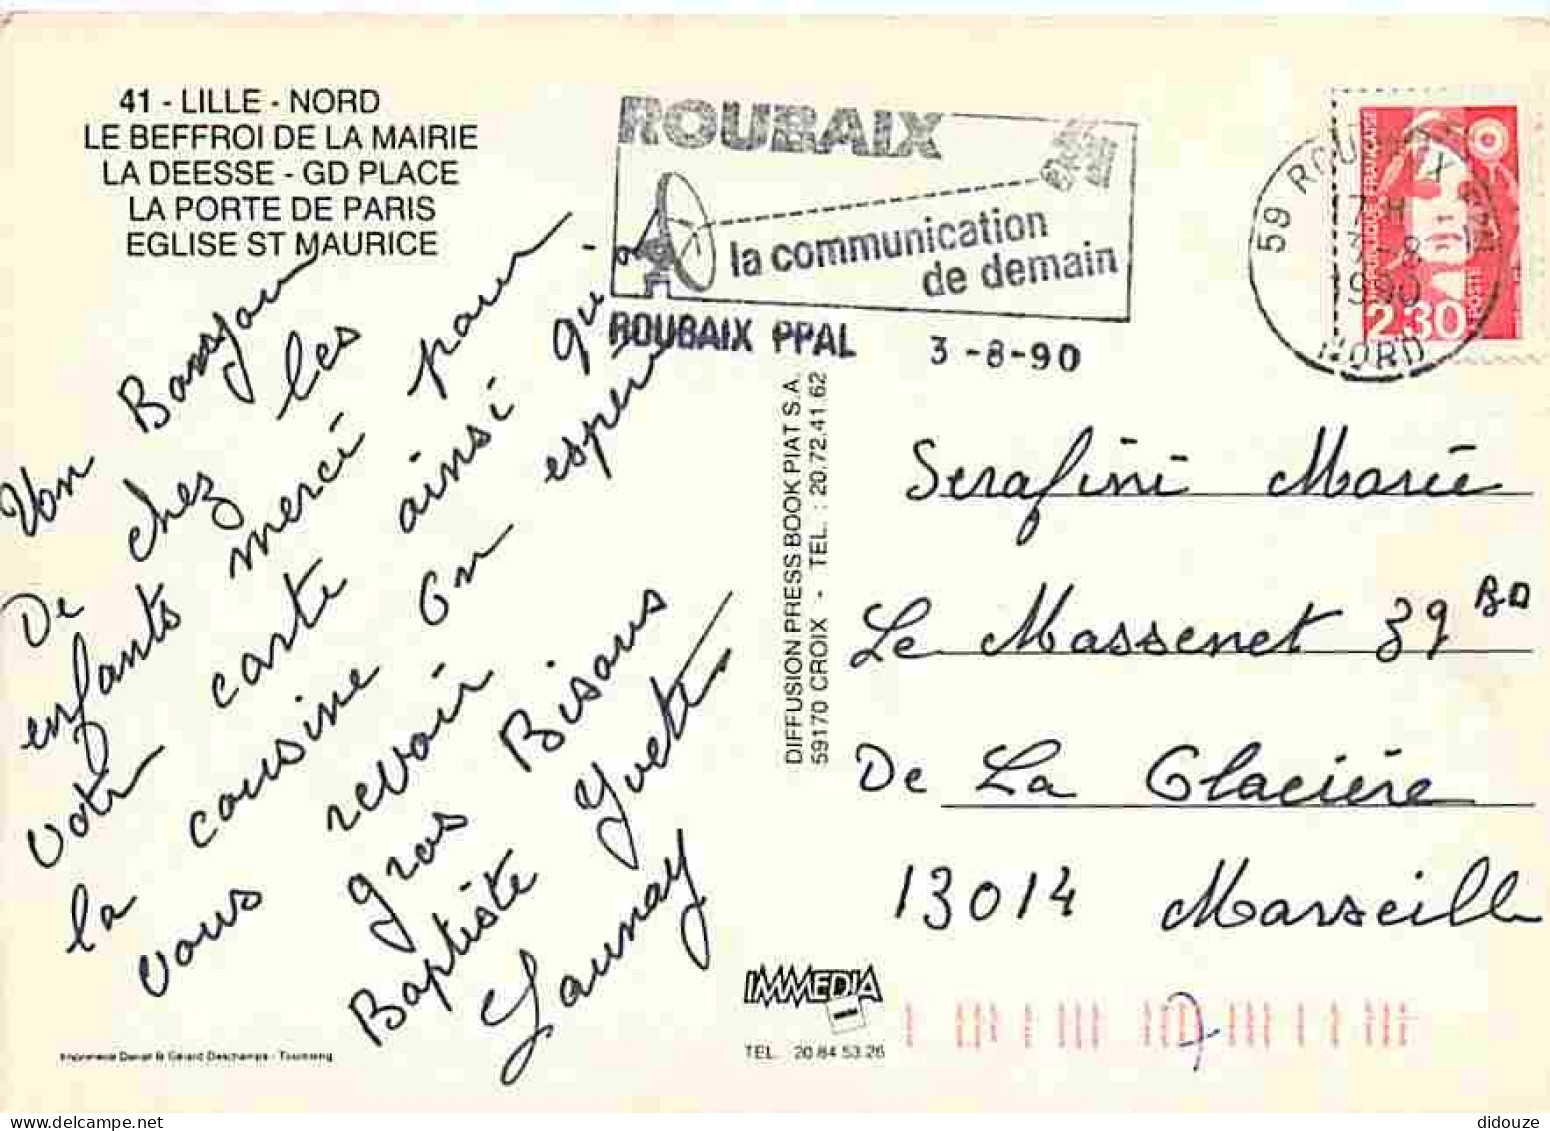 41 - LILLE - NORD
LE BEFFROI DE LA MAIRIE
LA DEESSE - GD PLACE
LA PORTE DE PARIS
EGLISE ST MAURICE
Bonjour
De chez les
enfants mercé pour
votre carte ainsi qui
la cousine on espér
vous revoir
gros Bisous
Baptiste Yvette
Launay
DIFFUSION PRESS BOOK PIAT S.A.
59170 CROIX - TEL. : 20.72.41.62
ROUBAIX
la communication
de demain
ROUBAIX PPAL 3-8-90
59 ROUBAIX
17 H
3-8
1990
NORD
REPUBLIQUE FRANÇAISE
2.30 POSTE
Serafini Marie
Le Massenet 39 BD
De La Glaciére
13014 Marseille
IMMEDIA
TEL. 20.84.53.26
Imprimerie Daniel & Gérard Deschamps - Tourcoing
didouze